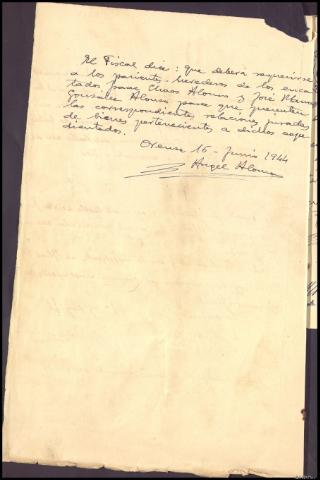 El Fiscal dice: que deberá requerirse
a los parientes herederos de los encar
tados Chaos Alonso y José
González Alonso para que presenten
las correspondientes relaciones juradas
de bienes pertenecientes a dichos expe
dientados.
Orense 16 - Junio 1944
Angel Alonso